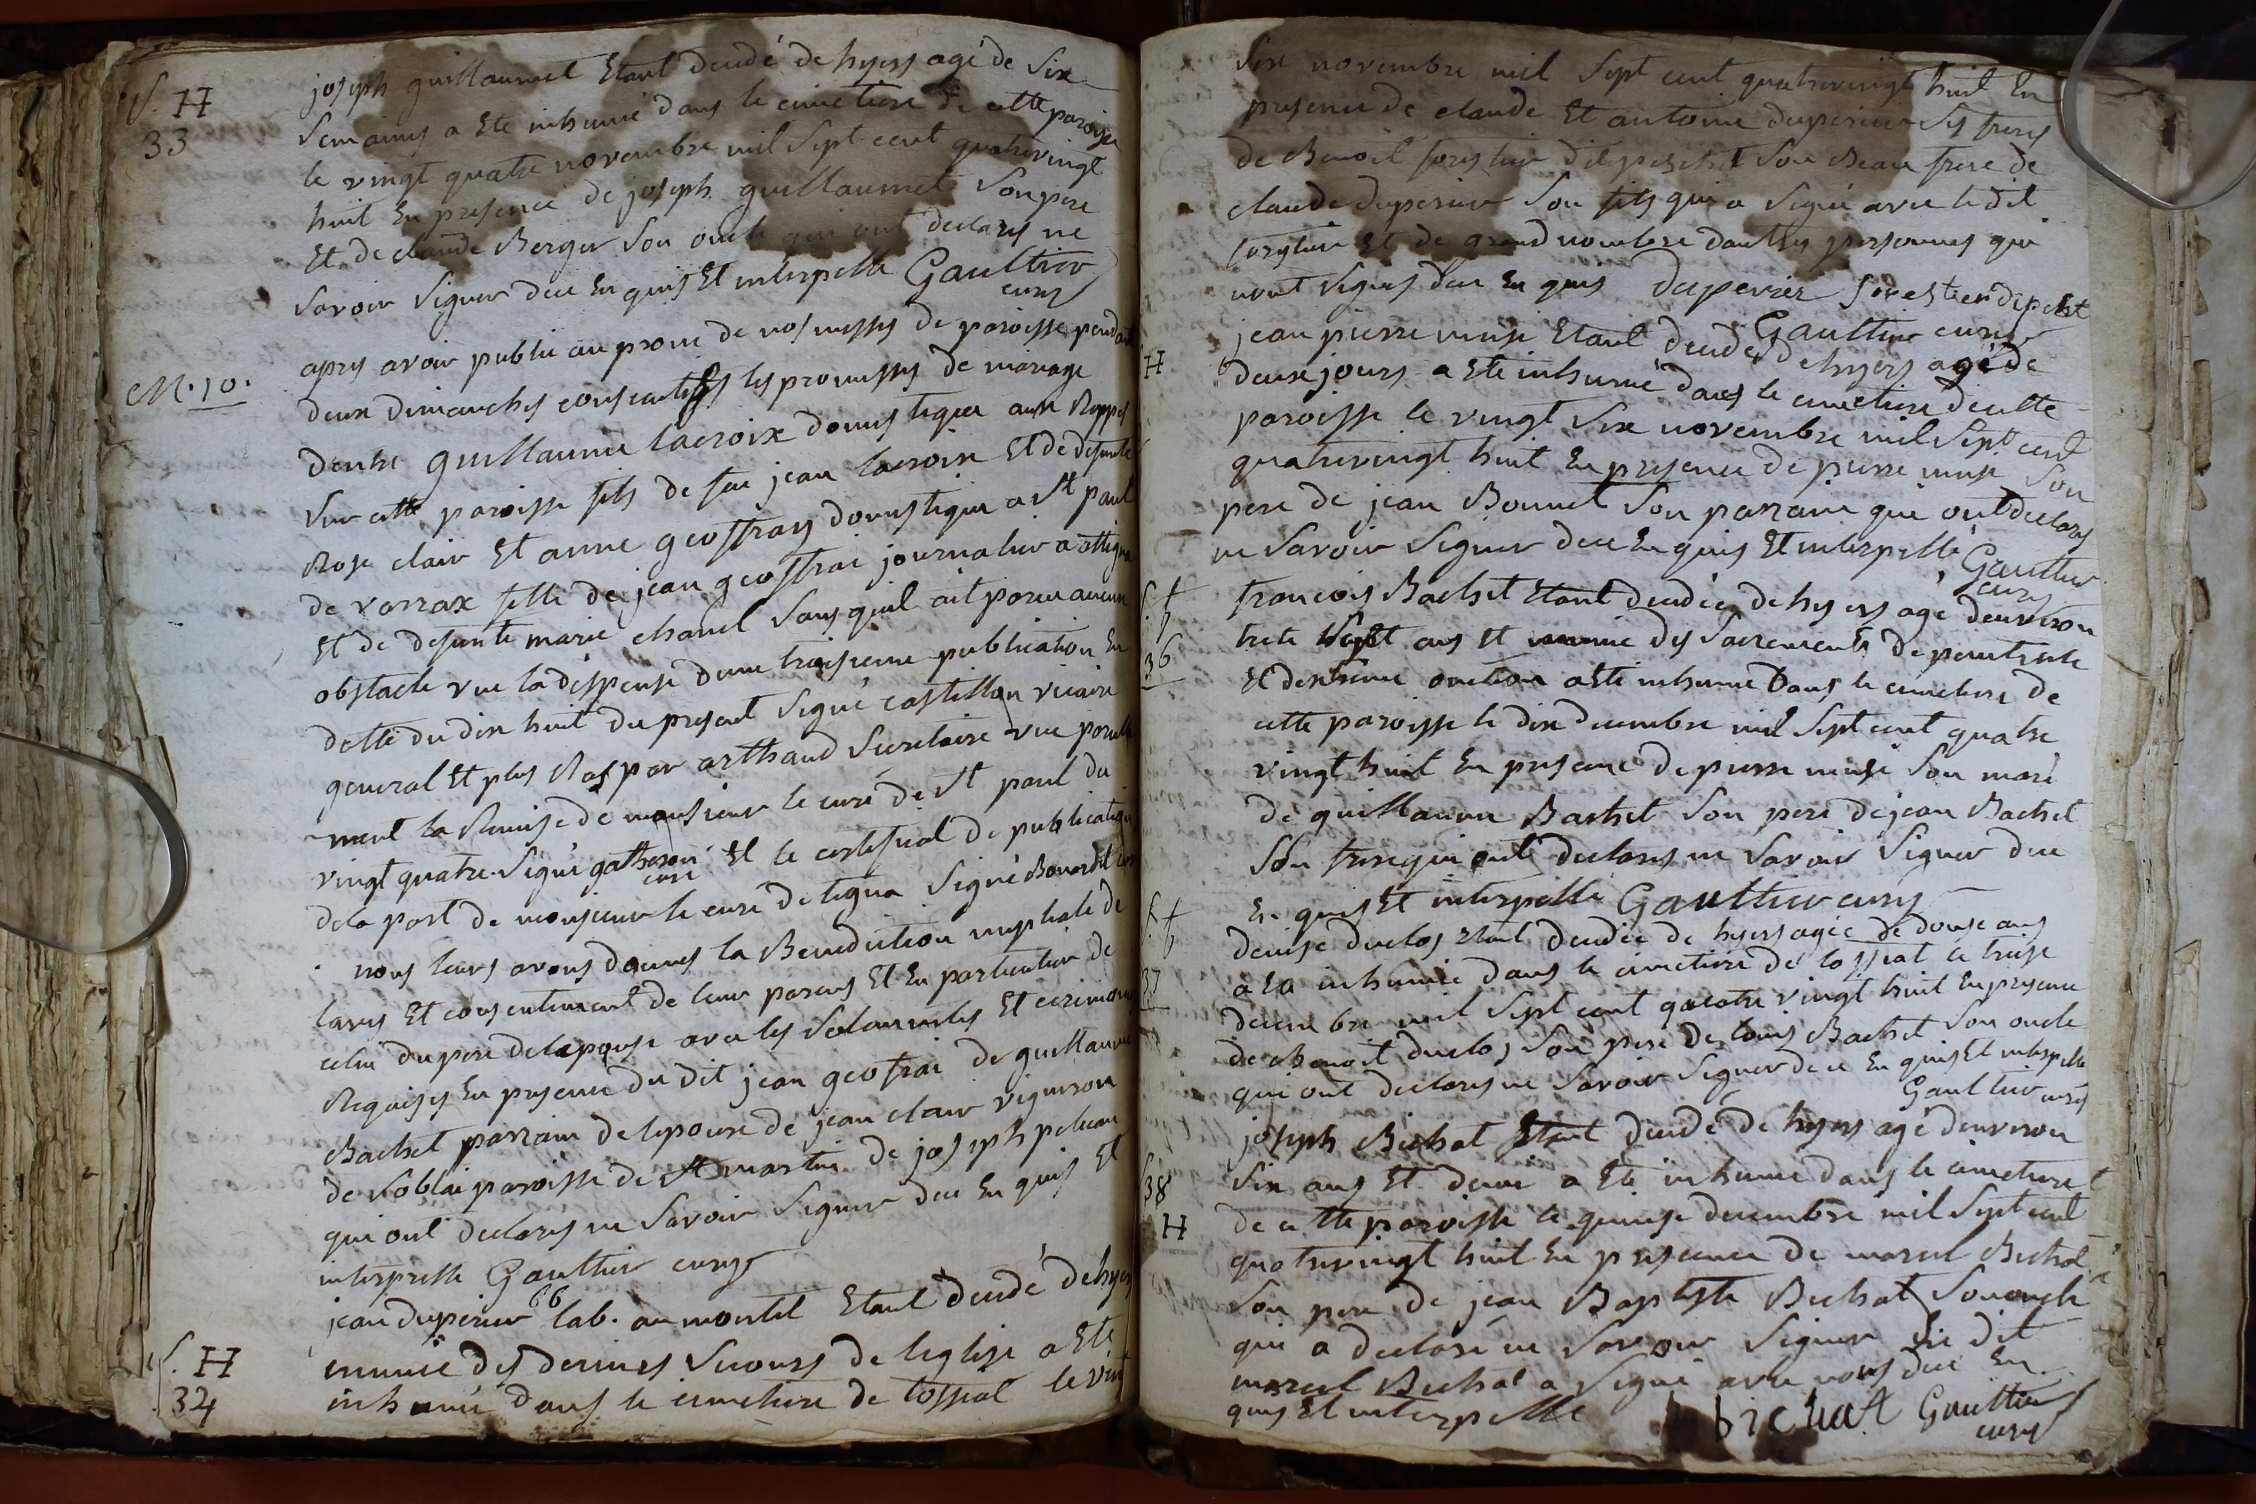 S. H
33
joseph guillaumet Etant decedé de hyers agé de six
semaines a Ete inhumé dans le cimetiere de cette paroisse
le vingt quatre novembre mil sept cent quatrevingt
huit En presence de joseph guillaumet son pere
Et de claude Berger son oncle qui ont declarés ne
savoir signer de ce En quis Et interpellé Gaultier
curé
M. 10.
apres avoir publié au prone de nos messes de paroisse pendant
deux dimanches consecutifs les promesses de mariage
dentre guillaume lacroix domestique aux
sur cette paroisse fils de feu jean lacroix Et de defunte
Rose clair Et anne geoffray domestique a st paul
de varax fille de jean geoffrai journalier a
Et de defunte marie chanel sans quil ait paru aucun
obstacle vue la dispense dune troisieme publication En
datte du dix huit du present signé castillon vicaire
general Et plus Bas par arthaud secretaire vue
ment la Remise de monsieur le curé de st paul du
vingt quatre signé
curé Et le certificat de publication
de la part de monsieur le curé de signé
nous leurs avons données la Benediction nuptiale de
lavis Et consentement de leurs parens Et En particulier de
celui du pere de lepouse avec les solemnités Et ceremonies
Requises En presence du dit jean geofrai de guillaume
Bachet parrain de lepouse de jean clair vigneron
de soblai paroisse de st martin de joseph
qui ont declarés ne savoir signer de ce En quis Et
interpellé Gaultier curé
S. H
34
jean duperier 66 lab. au montel Etant decedé de hyers
munie des derniers secours de leglise a Ete
inhumé dans le cimetiere de lossiat le vint
six novembre mil sept cent quatrevingt huit En
presence de claude Et antoine duperier ses freres
de Benoit forestier dit son Beau frere de
claude duperier son fils qui a signé avec le dit
forestier Et de grand nombre dautres personnes qui
nont signés de ce En quis duperier forestier
Gaultier curé
H
jean pierre Etant decedé de hyers agé de
deux jours a Ete inhumé dans le cimetiere de cette
paroisse le vingt six novembre mil sept cent
quatrevingt huit En presence de pierre son
pere de jean Bonnet son parrain qui ont declarés
ne savoir signer de ce En quis Et interpellé Gaultier
curé
f. f
36
francois Bachet Etant decedée de hyers agé denviron
trente sept ans Et munie des sacrements de penitence
Et dextreme onction a Ete inhumé Dans le cimetiere de
cette paroisse le dix decembre mil sept cent quatre
vingt huit En presence de pierre son mari
de guillaume Bachet son pere de jean Bachet
son frere qui ont declarés ne savoir signer de ce
En quis Et interpellé Gaultier curé
f. f
37
denise duclos Etant decedée de hyers agée de douse ans
a Eté inhumée dans le cimetiere de lossiat le treise
decembre mil sept cent quatre vingt huit En presence
de Benoit duclos son pere de louis Bachet son oncle
qui ont declarés ne savoir signer de ce En quis Et interpellé
Gaultier curé
38
H
joseph Bichat Etant decedé de hyers agé denviron
six ans Et demi a Ete inhumé dans le cimetiere
de cette paroisse le quinse decembre mil sept cent
quatrevingt huit En presence de marcel Bichat
son pere de jean Baptiste Bichat son oncle
qui a declaré ne savoir signer le dit
marcel Bichat a signé avec nous de ce En
quis Et interpellé bichat Gaultier
curé